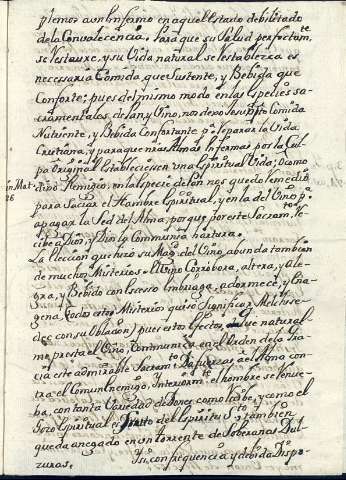 plemos a un Enfermo en aquel estado debilitado
de la Convalecencia. Para que su Salud perfectam.te
se restaure, y su Vida natural se establezca es
necesaria Comida, que Sustente, y Bebida que
Conforte; pues del mismo modo en las Especies sa-
cramentales de Pan, y Vino, nos dexo Comida
Nutriente, y Bebida Confortante p.a reparar la Vida
Christiana, y para que nras Almas enfermas por la Cul-
pa Original estableciessen una Espiritual Vida; O como
dixo Remigio, en la especie de Pan nos quedo remedio
para Saciar el Hambre Espiritual, y en la del Vino p.a
apagar la Sed del Alma, porque por este Sacram.to re-
cibe a Dios, y Dios le Comunica hartura.
La eleccion que hizo su Mag.d del Vino, abunda tambien
de muchos Misterios. el Vino Corrobora, altera, y ale-
gra, y Bebido con exceso embriaga, adormece, y ena-
gena,
dec con su Oblacion) pues estos efectos, que natural
m.te presta el Vino, Comunica en el Orden de la Gra-
cia este admirable Sacram.to al Alma con-
tra el Comun Enemigo, el hombre se renue-
ba, con tanta Variedad de Dones como recibe, y como el
Gozo Espiritual es fruto del Espiritu S.to tambien
queda anegado en un torrente de Soberanas Dul-
zuras. Su frequencia y debida Dispo-